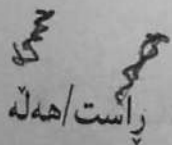 ڕاست/هەڵە